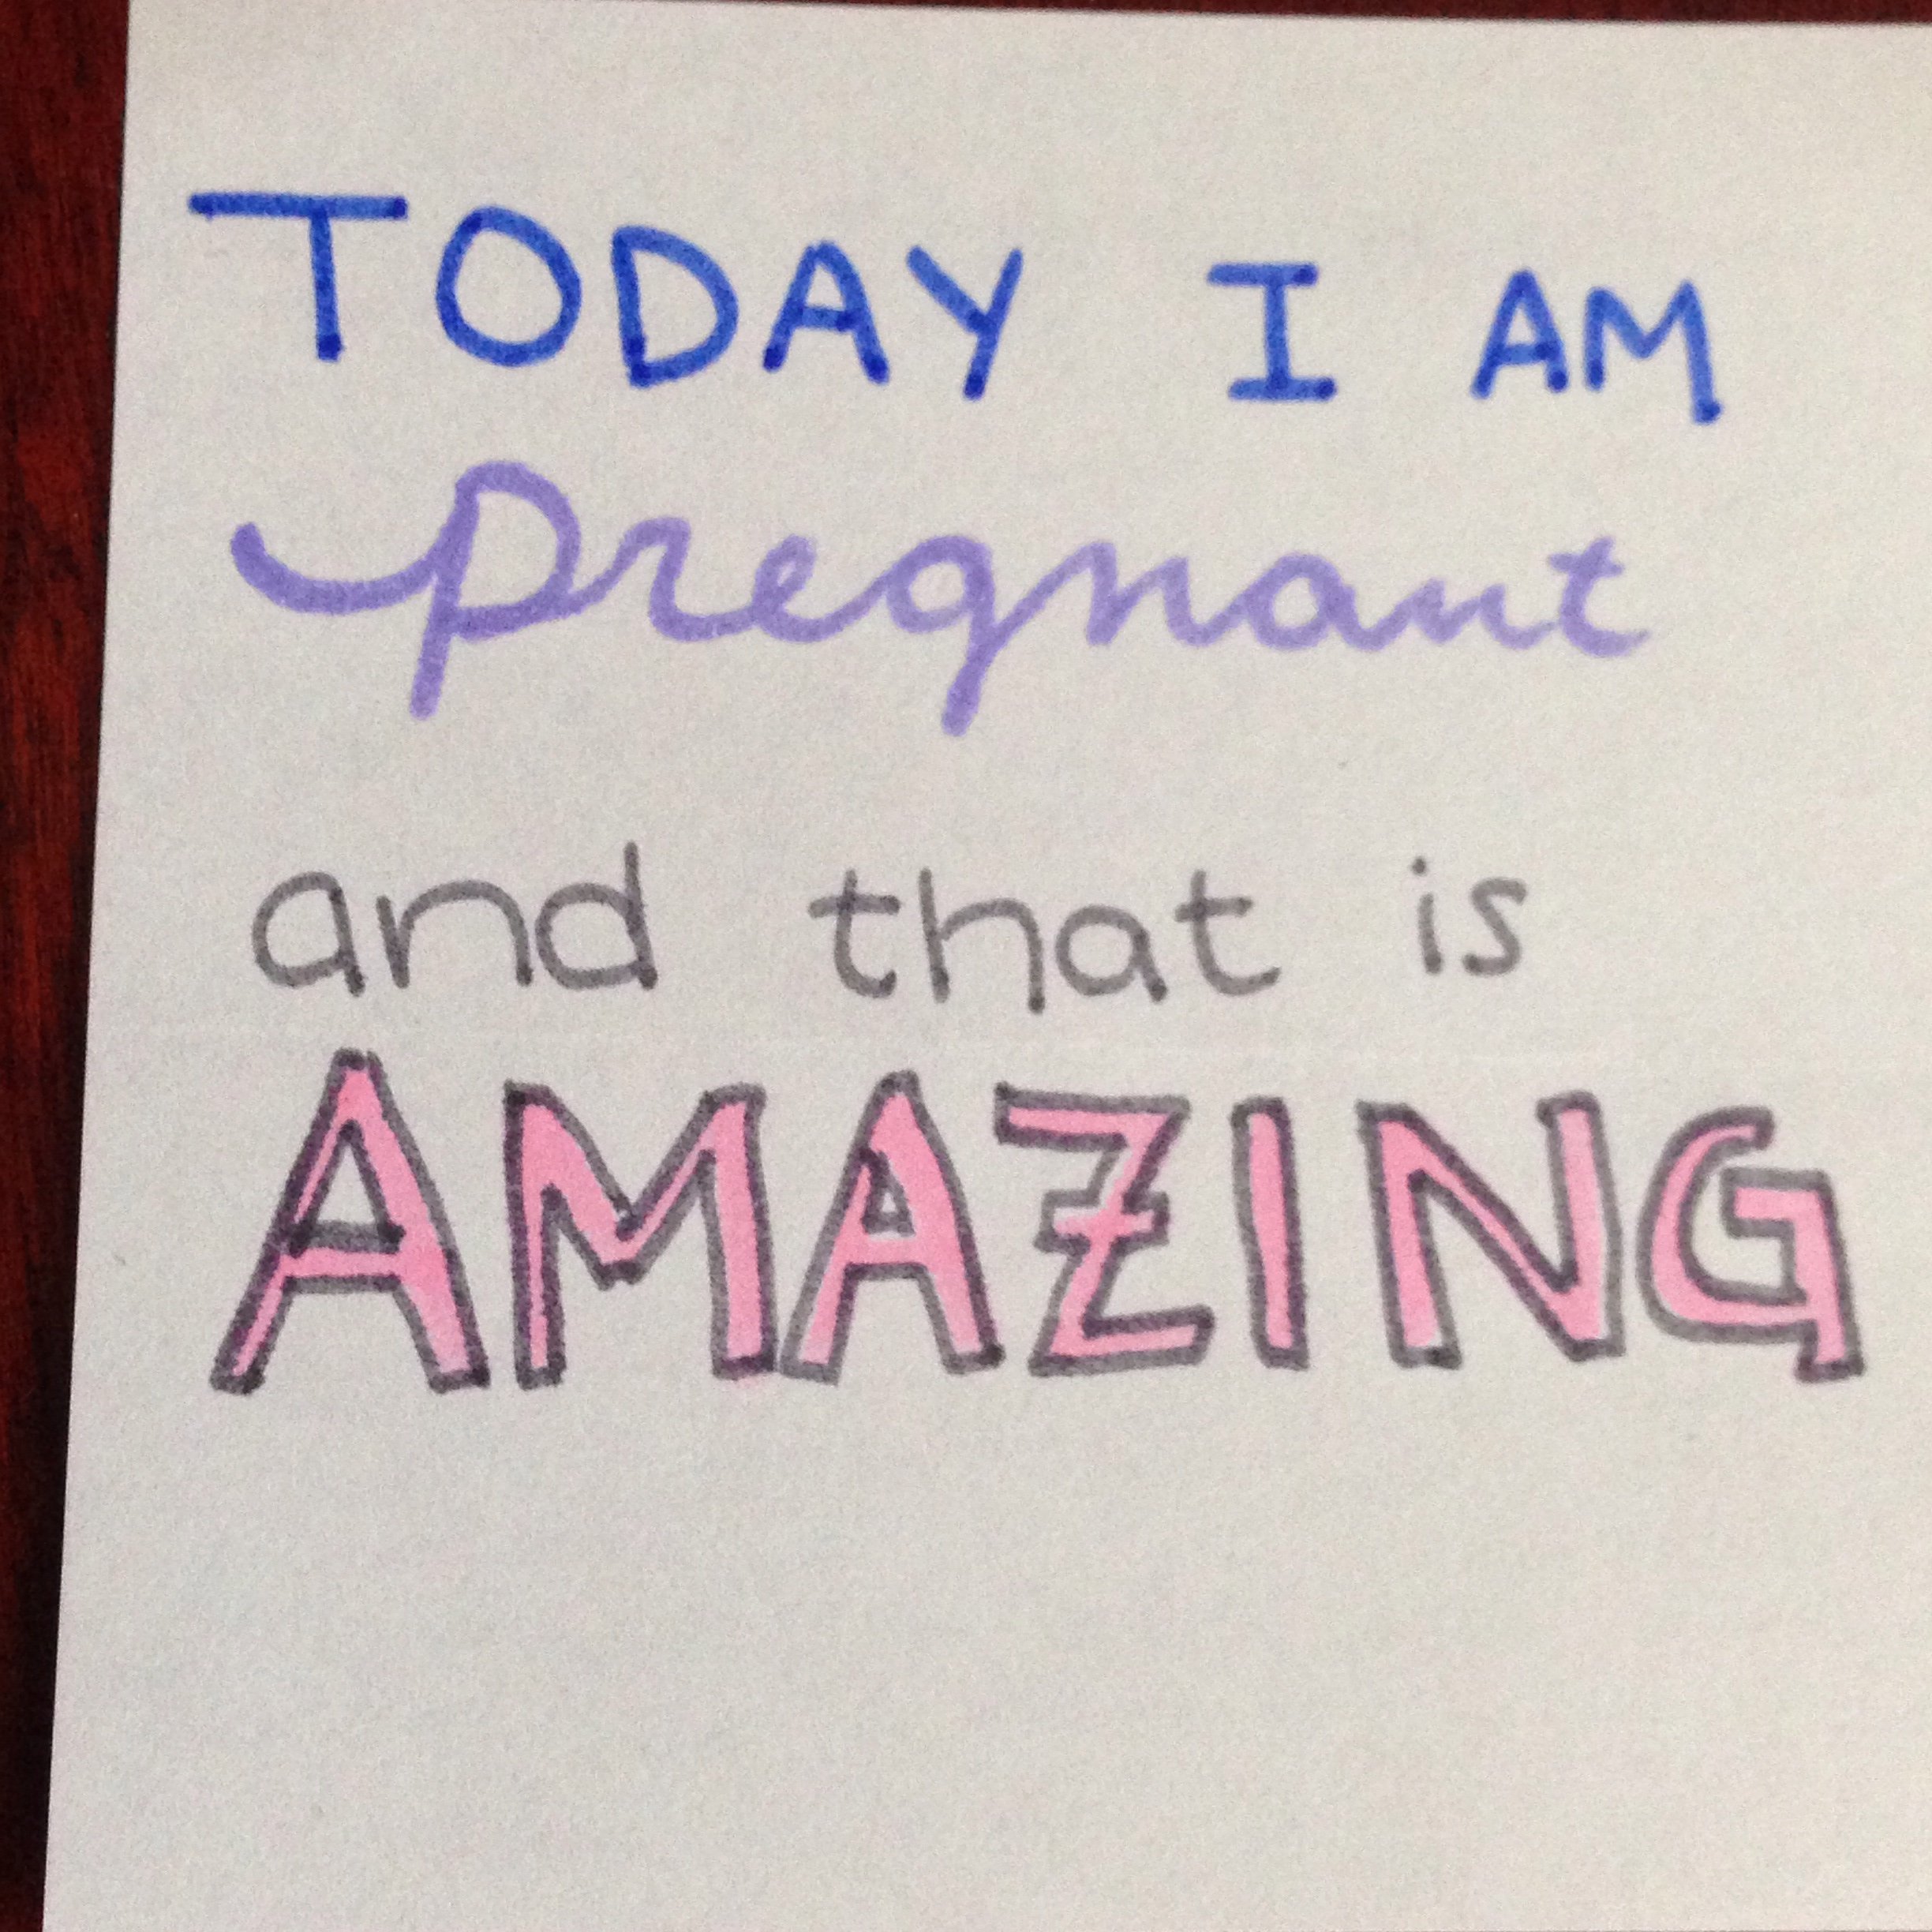 TODAY I AM
pregnant
and that is
AMAZING